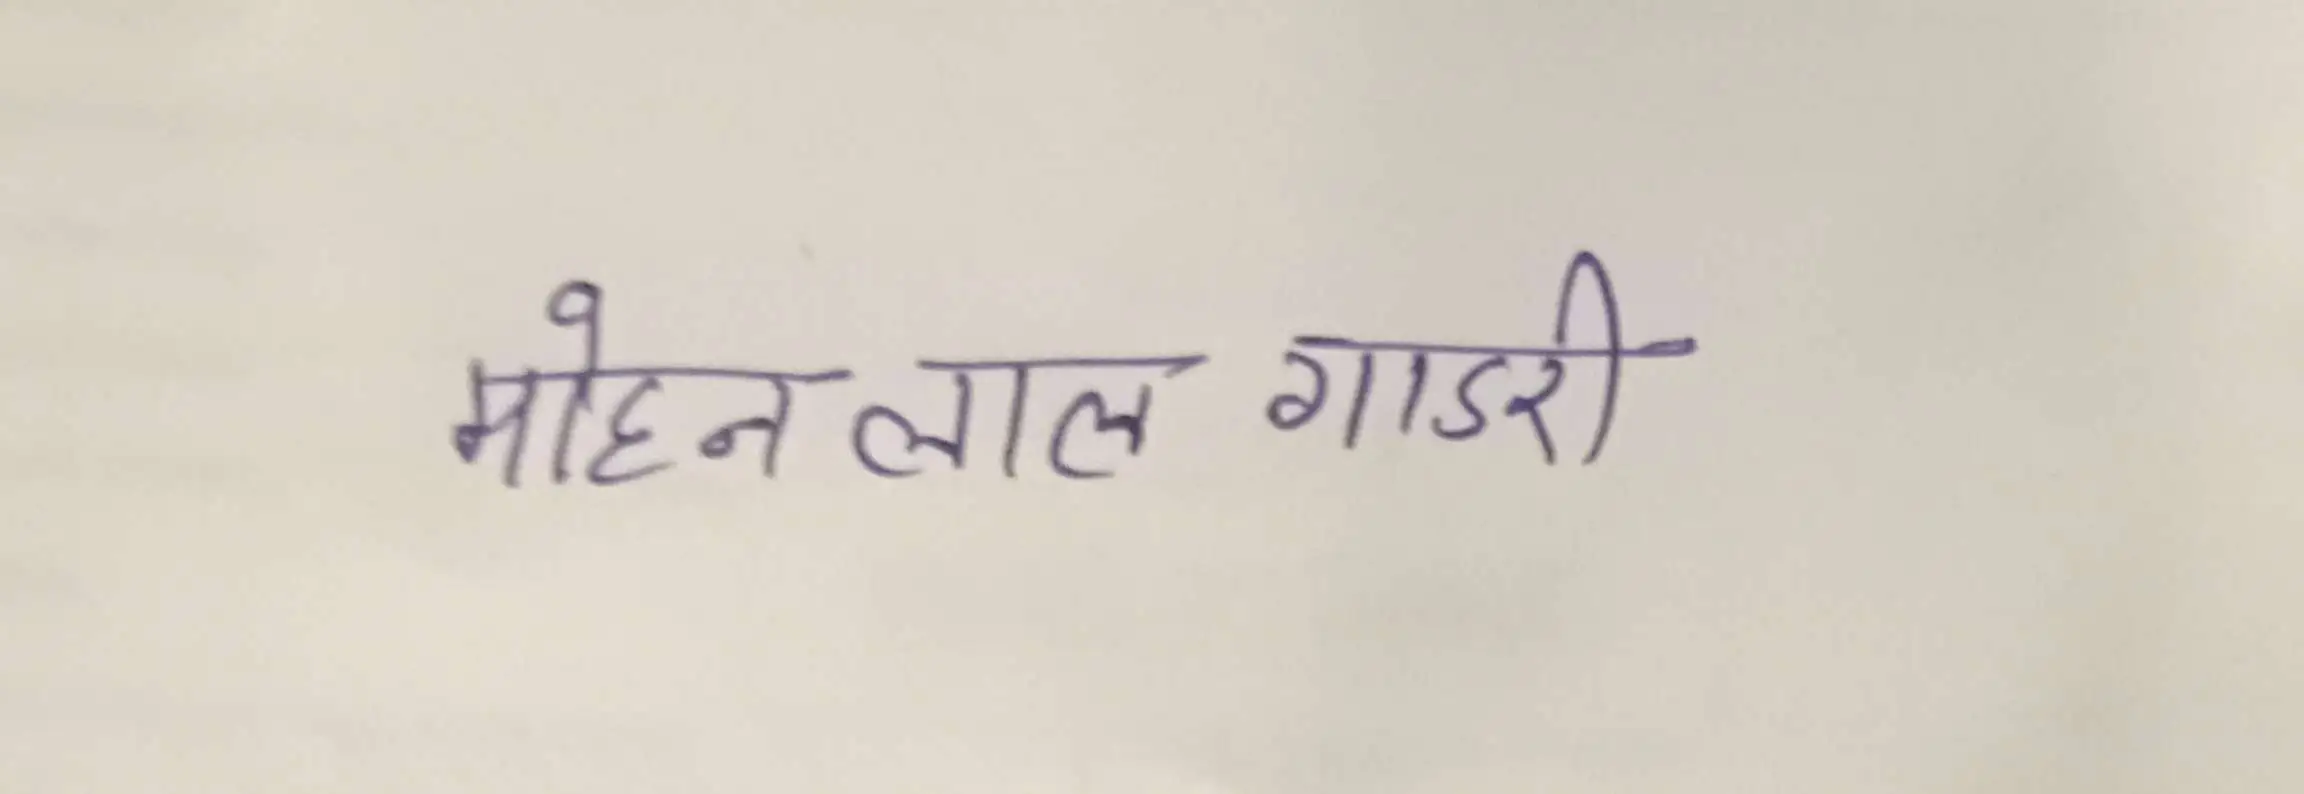 मोहन लाल गाडरी